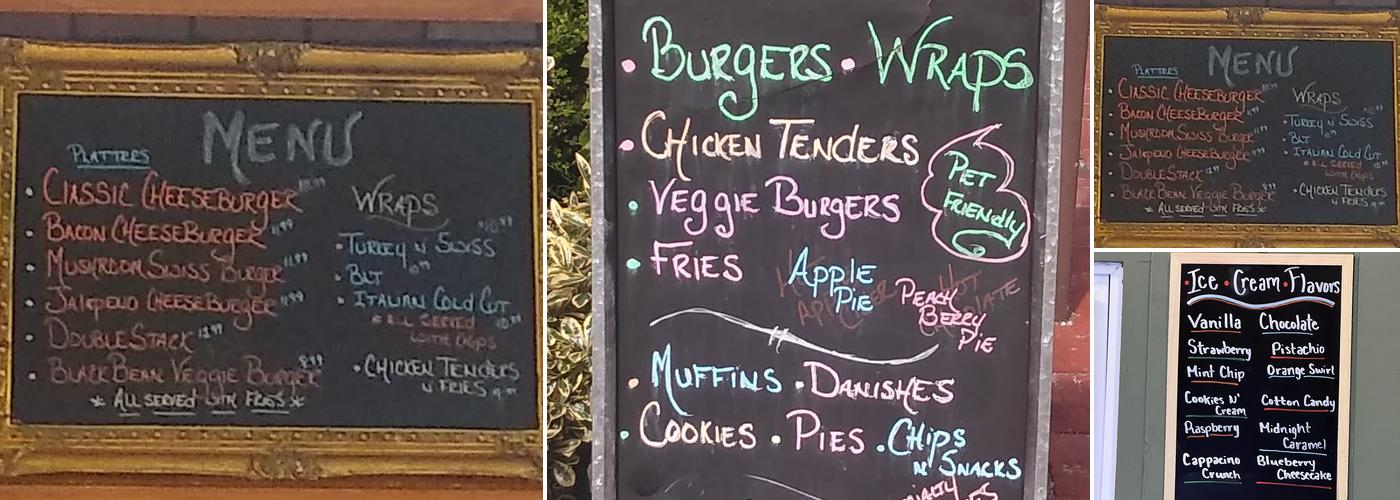 MENU
PLATTERS
• CLASSIC CHEESEBURGER
• BACON CHEESEBURGER 11.99
• MUSHROOM SWISS BURGER 11.99
• JALAPENO CHEESEBURGER 11.99
• DOUBLESTACK 13.99
• BLACK BEAN VEGGIE BURGER 8.99
* ALL SERVED WITH FRIES *
WRAPS 10.99
• TURKEY N SWISS
• BLT
• ITALIAN COLD CUT
* ALL SERVED
WITH CHIPS
• CHICKEN TENDERS
N FRIES
• BURGERS • WRAPS
• CHICKEN TENDERS
• VEGGIE BURGERS
• FRIES
PET
FRIENdly
APPlE
PiE
PEACH
BERRY
PiE
• MUFFiNS • DANiSHES
• COOKiES • PiES • CHiPS
N' SNACKS
MENU
PLATTERS
• CLASSIC CHEESEBURGER
• BACON CHEESEBURGER 11.99
• MUSHROOM SWISS BURGER 11.99
• JALAPENO CHEESEBURGER 11.99
• DOUBLESTACK 13.99
• BLACK BEAN VEGGIE BURGER 8.99
* ALL SERVED WITH FRIES *
WRAPS 10.99
• TURKEY N SWISS
• BLT
• ITALIAN COLD CUT
* ALL SERVED
WITH CHIPS
• CHICKEN TENDERS
N FRIES
• Ice • Cream • Flavors
Vanilla Chocolate
Strawberry Pistachio
Mint Chip Orange Swirl
Cookies N' Cotton Candy
Cream
Raspberry Midnight
Caramel
Cappacino Blueberry
Crunch Cheesecake